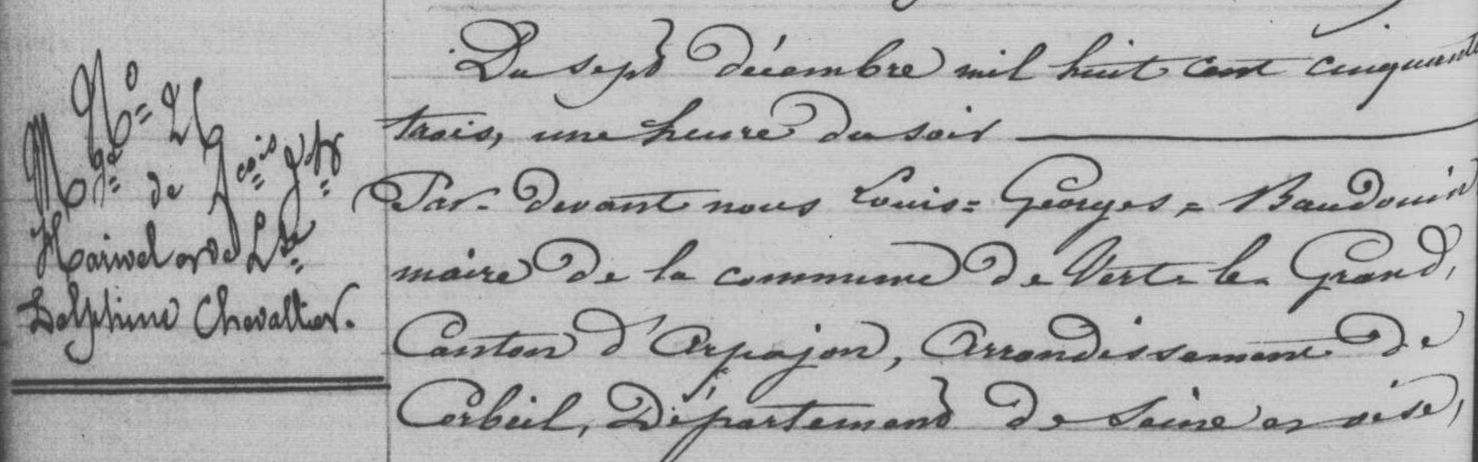 N° 26
M.ge de F.cois J.ph
Harivel et de L.se
Delphine Chevallier.
Du sept décembre mil huit cent cinquante
trois, une heure du soir
Par-devant nous Louis=Georges=Baudouin
maire de la commune de Vert-le-Grand,
Canton d'Arpajon, Arrondissement de
Corbeil, Département de Seine et oise,